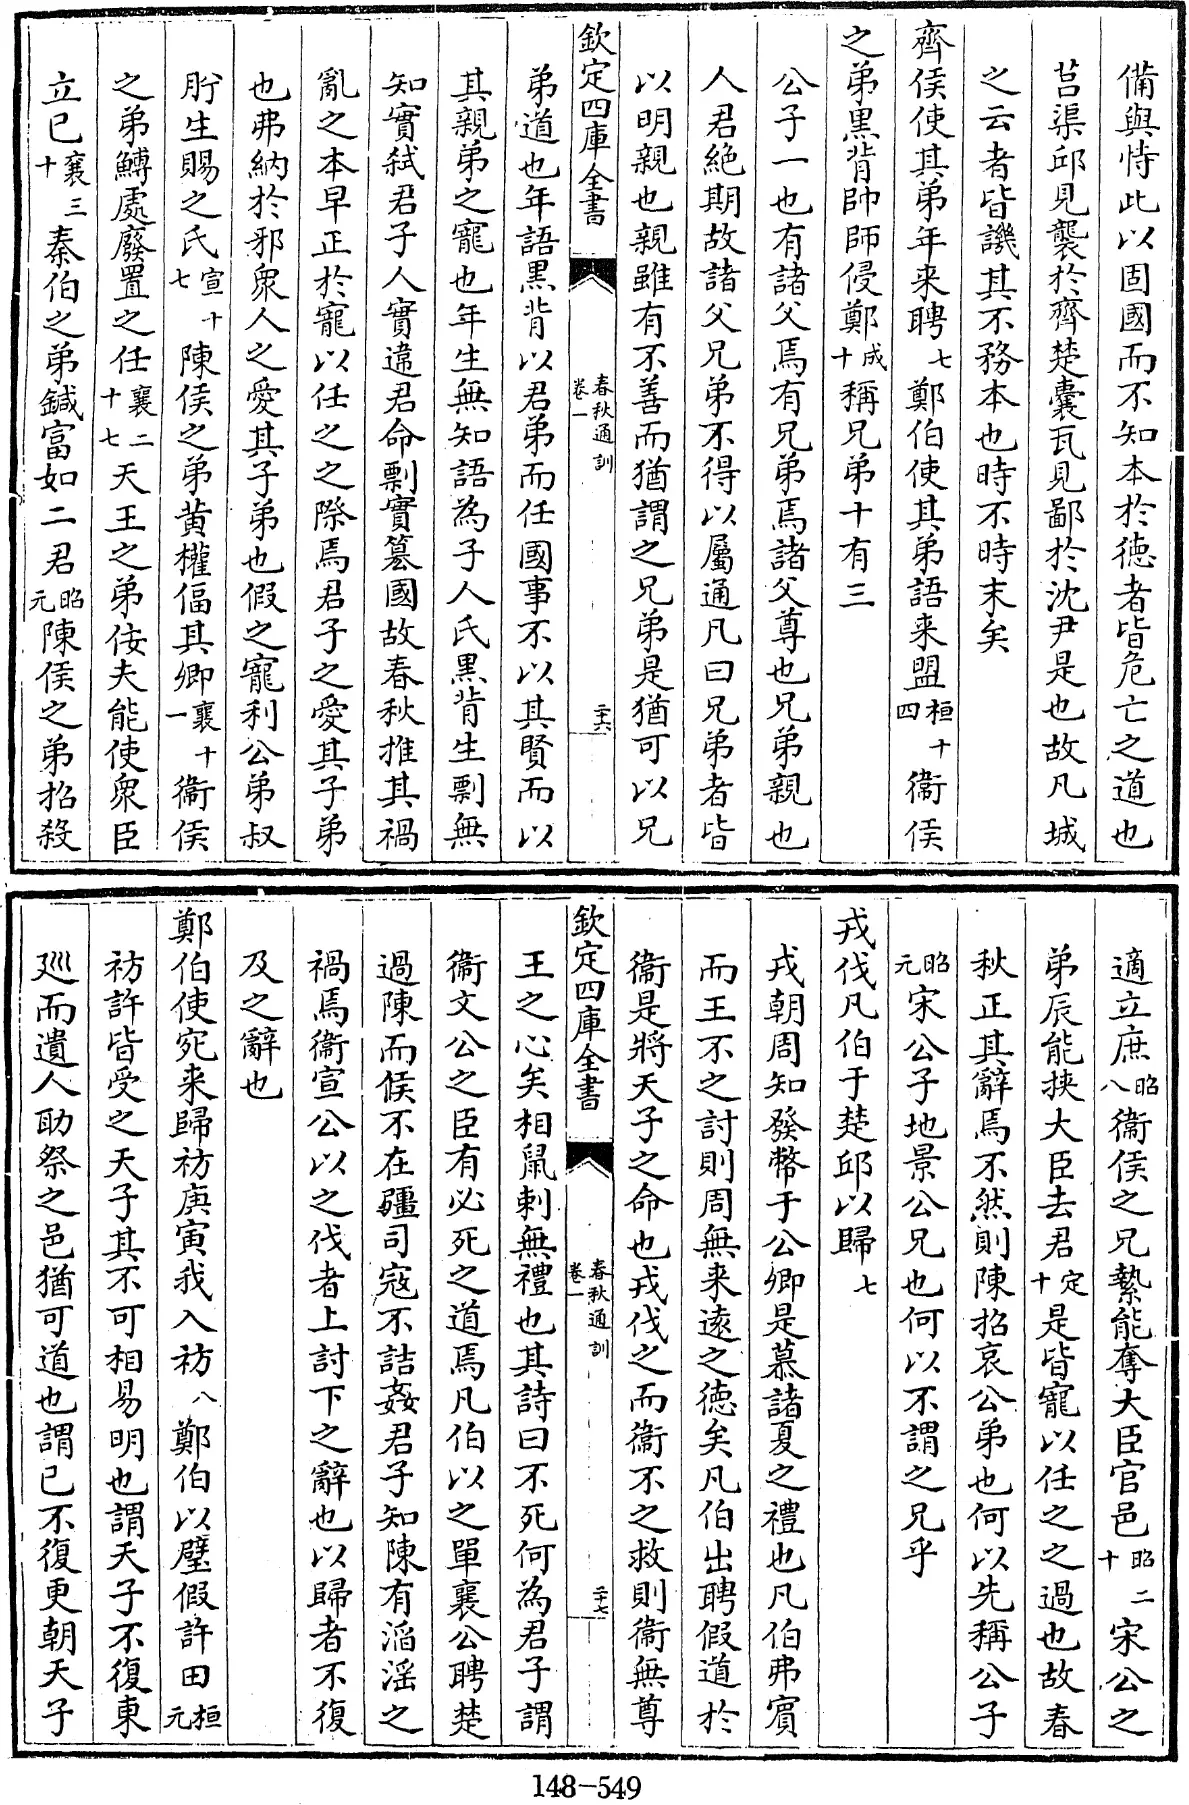 備與恃此以固國而不知本於德者皆危亡之道也
莒渠邱見襲於齊楚囊瓦見鄙於沈尹是也故凡城
之云者皆譏其不務本也時不時末矣
齊侯使其弟年来聘七鄭伯使其弟語来盟桓十四衞侯
之弟黑背帥師侵鄭成十稱兄弟十有三
公子一也有諸父焉有兄弟焉諸父尊也兄弟親也
人君絶期故諸父兄弟不得以屬通凡曰兄弟者皆
以明親也親雖有不善而猶謂之兄弟是猶可以兄
欽定四庫全書
春秋通訓
卷一
二十六
弟道也年語黑背以君弟而任國事不以其賢而以
其親弟之寵也年生無知語為子人氏黑背生剽無
知實弑君子人實違君命剽實簒國故春秋推其禍
亂之本早正於寵以任之之際焉君子之愛其子弟
也弗納於邪衆人之愛其子弟也假之寵利公弟叔
肸生賜之氏宣十七陳侯之弟黄權偪其卿襄十一衞侯
之弟鱄處廢置之任襄二十七天王之弟佞夫能使衆臣
立已襄三十秦伯之弟鍼富如二君昭元陳侯之弟招殺
適立庶昭八衞侯之兄縶能奪大臣官邑昭二十宋公之
弟辰能挾大臣去君定十是皆寵以任之之過也故春
秋正其辭焉不然則陳招哀公弟也何以先稱公子
昭元宋公子地景公兄也何以不謂之兄乎
戎伐凡伯于楚邱以歸七
戎朝周知發幣于公卿是慕諸夏之禮也凡伯弗賓
而王不之討則周無来遠之德矣凡伯出聘假道於
衞是將天子之命也戎伐之而衞不之救則衞無尊
欽定四庫全書
春秋通訓
卷一
二十七
王之心矣相鼠刺無禮也其詩曰不死何為君子謂
衞文公之臣有必死之道焉凡伯以之單襄公聘楚
過陳而侯不在疆司寇不詰姦君子知陳有滔滛之
禍焉衞宣公以之伐者上討下之辭也以歸者不復
及之辭也
鄭伯使宛来歸祊庚寅我入祊八鄭伯以璧假許田桓元
祊許皆受之天子其不可相易明也謂天子不復東
廵而遺人助祭之邑猶可道也謂已不復更朝天子
148-549